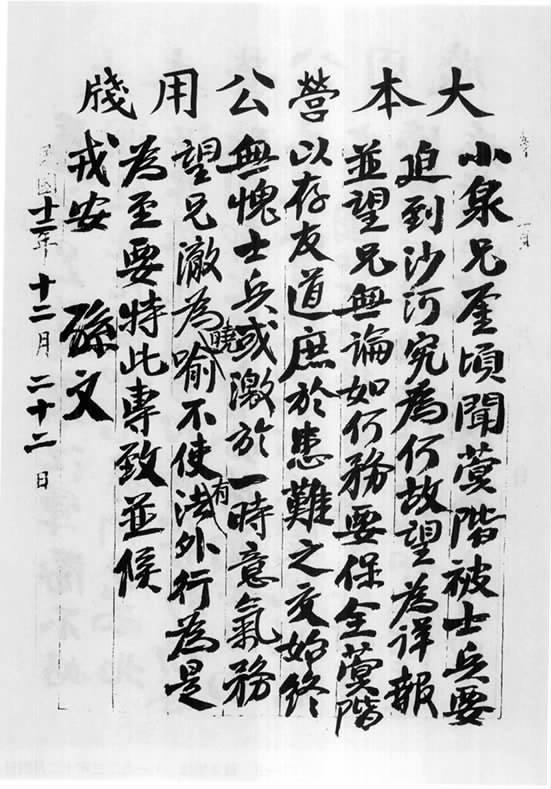 大本營公用牋
小泉兄鑒頃聞蓂階被士兵要
迫到沙河究為何故望為詳報
並望兄無論如何務要保全蓂階
以存友道庶於患難之交始終
無愧士兵或激於一時意氣務
望兄澈為曉喻不使有法外行為是
為至要特此專致並候
戎安 孫文
民國十二年十二月二十二日